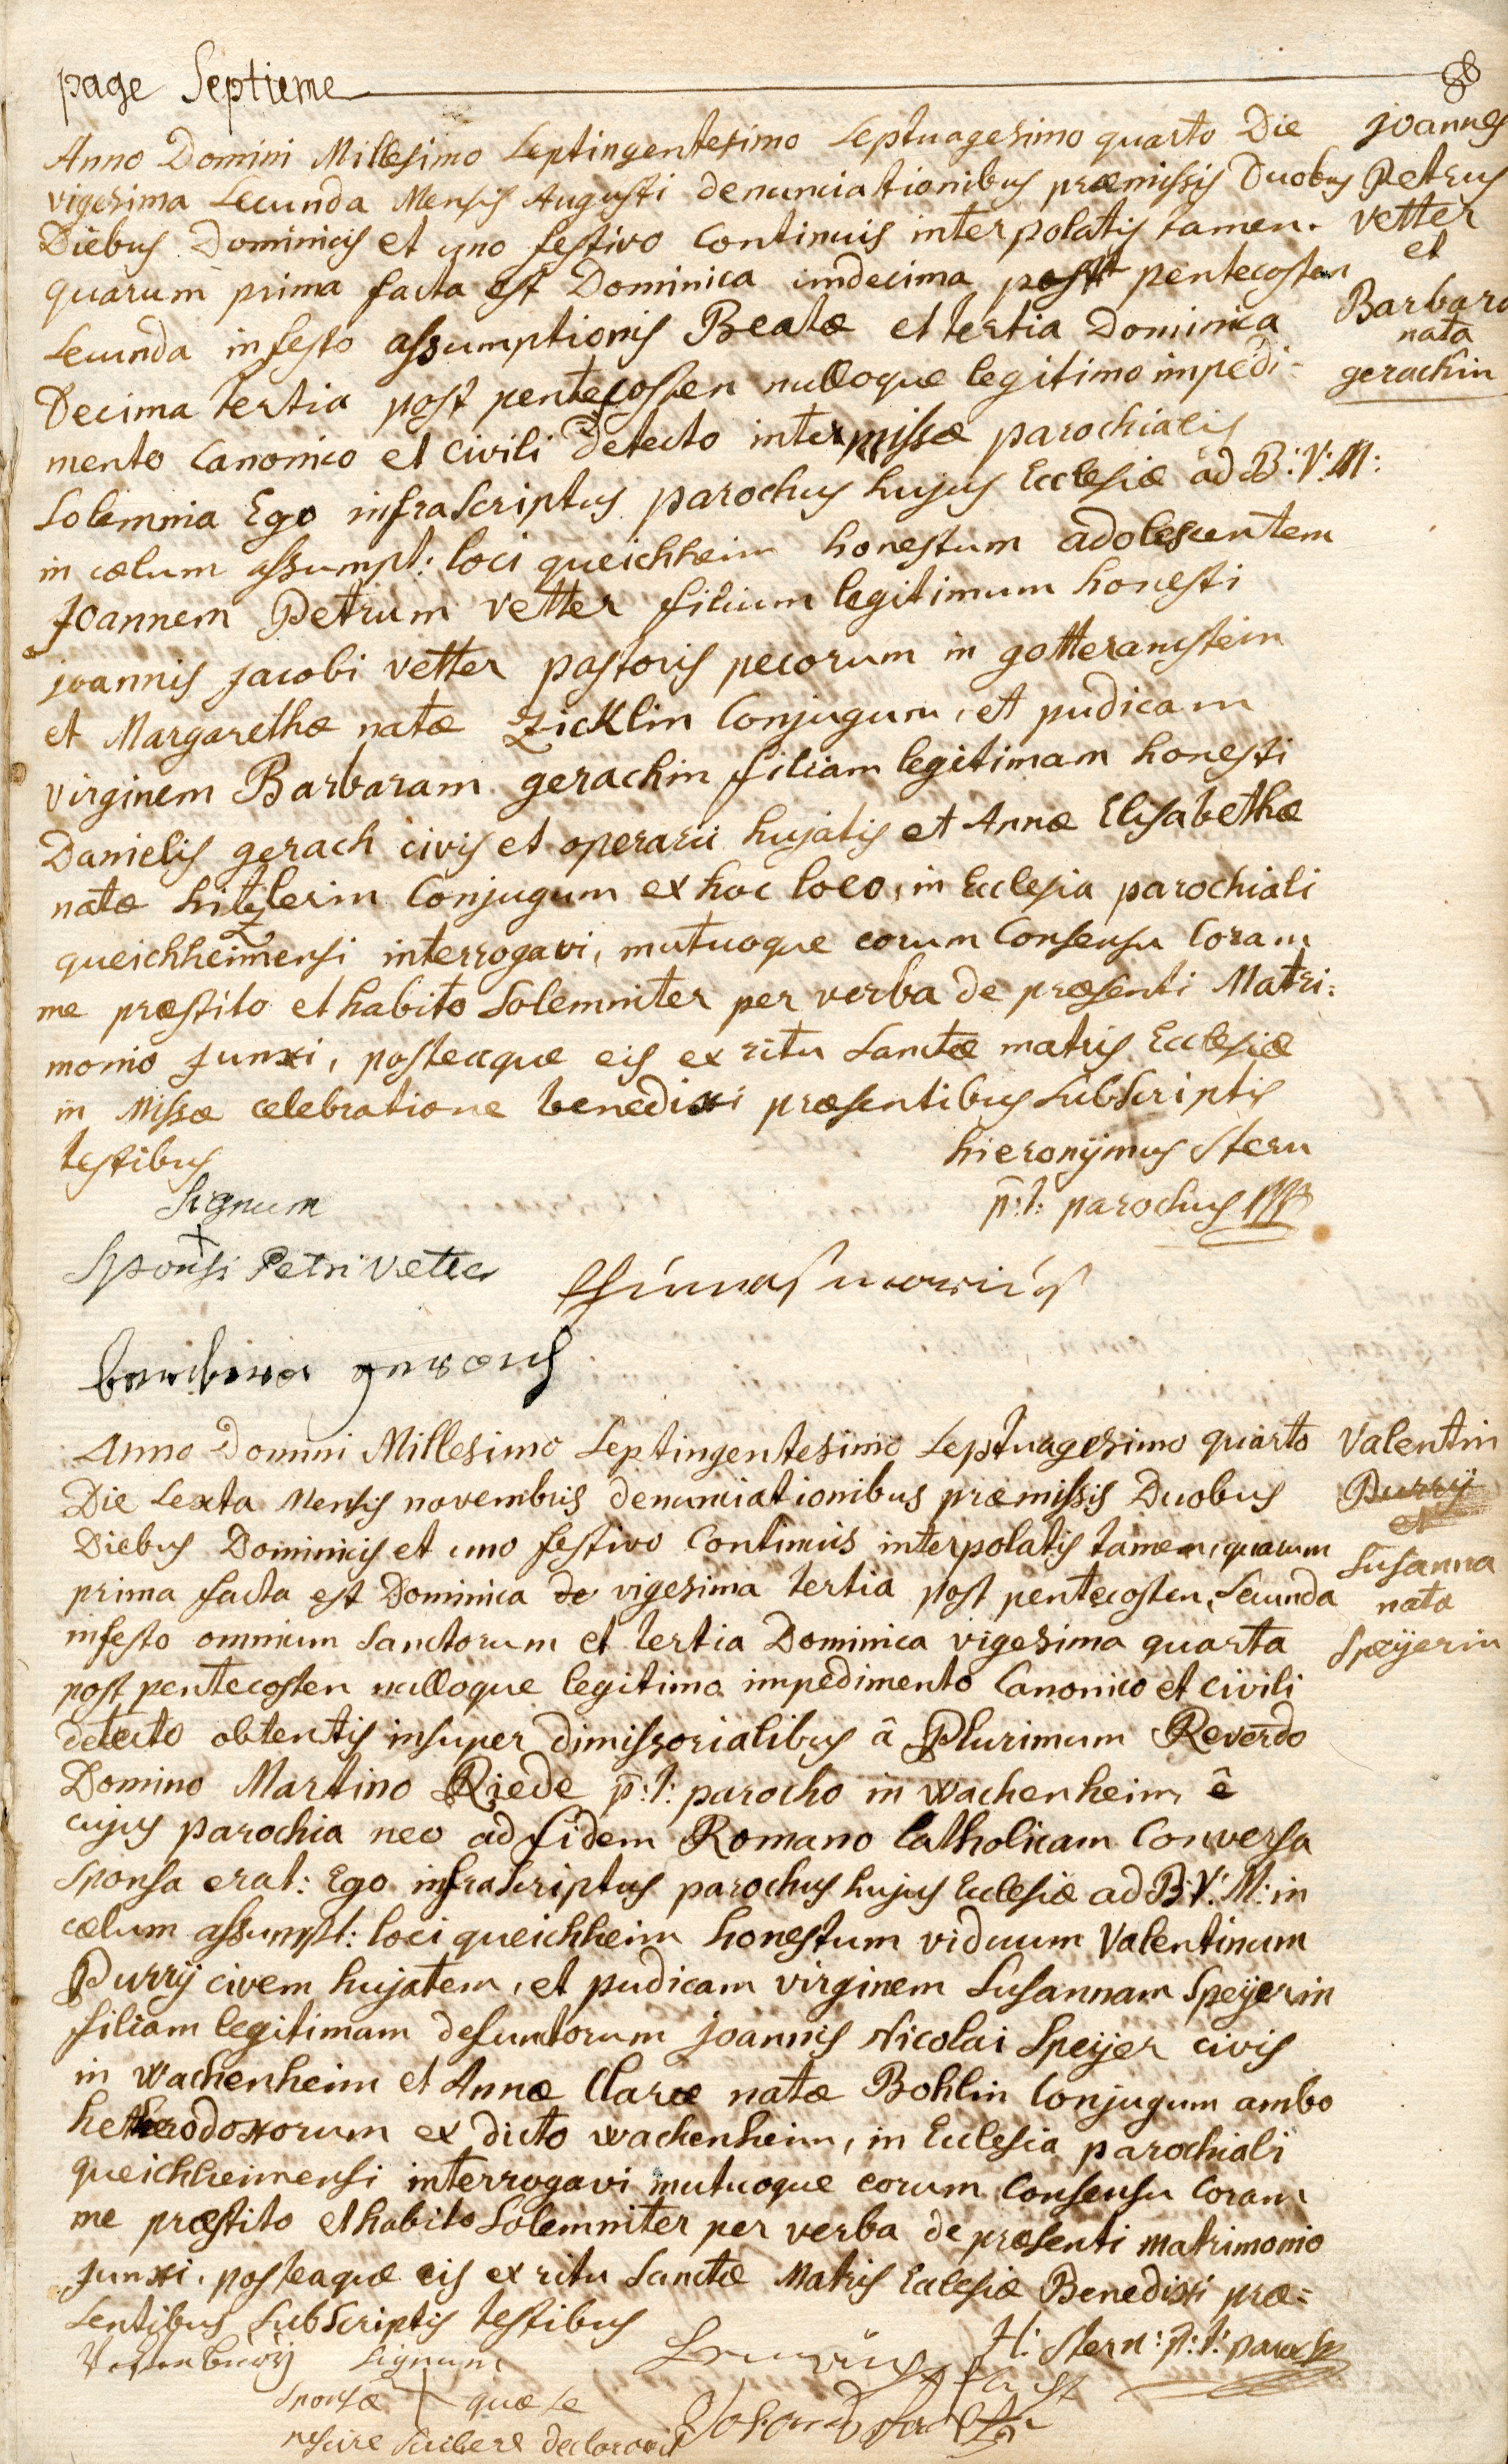 page Septieme
86
Anno Domini Millesimo Septingentesimo Septuagesimo quarto Die
vigesima Secunda Mensis Augusti denunciationibus præmissis Duobus
Diebus Dominicis et uno festivo Continuis interpolatis tamen.
quarum prima facta est Dominica undecima post pentecosten
Secunda in festo assumptionis Beatæ et tertia Dominica
Decima tertia post pentecosten nulloque legitimo impedi-
mento Canonico et Civili Detecto inter missæ parochialis
Solemnia Ego infraScriptus parochus hujus Ecclesiæ ad B: V: M:
in cælum assumpt: loci queichheim honestum adolescentem
Joannem Petrum vetter filium legitimum honesti
joannis jacobi vetter pastoris pecorum in gotteramstein
et Margarethæ natæ Zicklin Conjugum, et pudicam
virginem Barbaram gerachin filiam legitimam honesti
Danielis gerach civis et operarii hujatis et Annæ Elisabethæ
natæ hitzlerin Conjugum ex hoc loco, in Ecclesia parochiali
queichheimensi interrogavi, mutuoque eorum Consensu Coram
me præstito et habito Solemniter per verba de præsenti Matri:
monio junxi, posteaque eis ex ritu Sanctæ matris Ecclesiæ
in Missæ celebratione benedixi præsentibus SubScriptis
testibus
hieronymus Stern
p:t: parochus
Signum
Sponsi Petri Vetter
joannes
Petrus
vetter
et
Barbara
nata
gerachin
Anno Domini Millesimo Septingentesimo Septuagesimo quarto
Die Sexta Mensis novembris denunciationibus præmissis Duobus
Diebus Dominicis et uno festivo Continuis interpolatis tamen, quarum
prima facta est Dominica de vigesima tertia post pentecosten, Secunda
in festo omnium Sanctorum et tertia Dominica vigesima quarta
post pentecosten nulloque legitimo impedimento Canonico et civili
detecto obtentis insuper dimissorialibus â Plurimum Reverdo
Domino Martino Riede p:t: parocho in wachenheim ê
cujus parochia neo ad fidem Romano Catholicam Conversa
Sponsa erat: Ego infraScriptus parochus hujus Ecclesiæ ad B: V: M: in
cælum assumpt: loci queichheim honestum viduum Valentinum
Purrÿ civem hujatem, et pudicam virginem Susannam Speÿerin
filiam legitimam defunctorum joannis Nicolai Speÿer civis
in wachenheim et Annæ Claræ natæ Bohlin Conjugum ambo
hetherodoxorum ex dicto wachenheim, in Ecclesia parochiali
queichheimensi interrogavi mutuoque eorum Consensu Coram
me præstito et habito Solemniter per verba de præsenti matrimonio
junxi, posteaque eis ex ritu Sanctæ Matris Ecclesiæ Benedixi præ=
sentibus SubScriptis testibus
H: Stern: p:t: paroch
Signum
Sponsæ quæ se
nescire scribere declaravit
Valentin
Purrÿ
et
Susanna
nata
Speÿerin